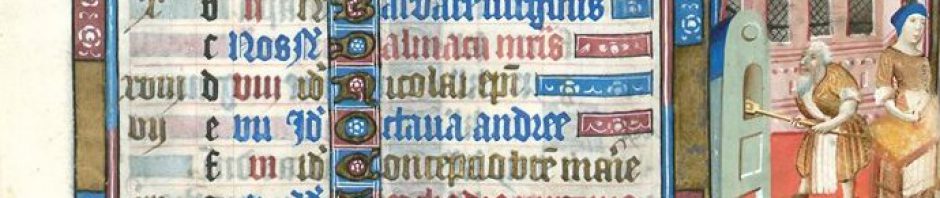 b ii N Barbare virginis
c Nos N Dalmacii mris
xviii d viii id Nicolai epi
vii e vii Id Octava andree
f vi id Concepcio bte marie